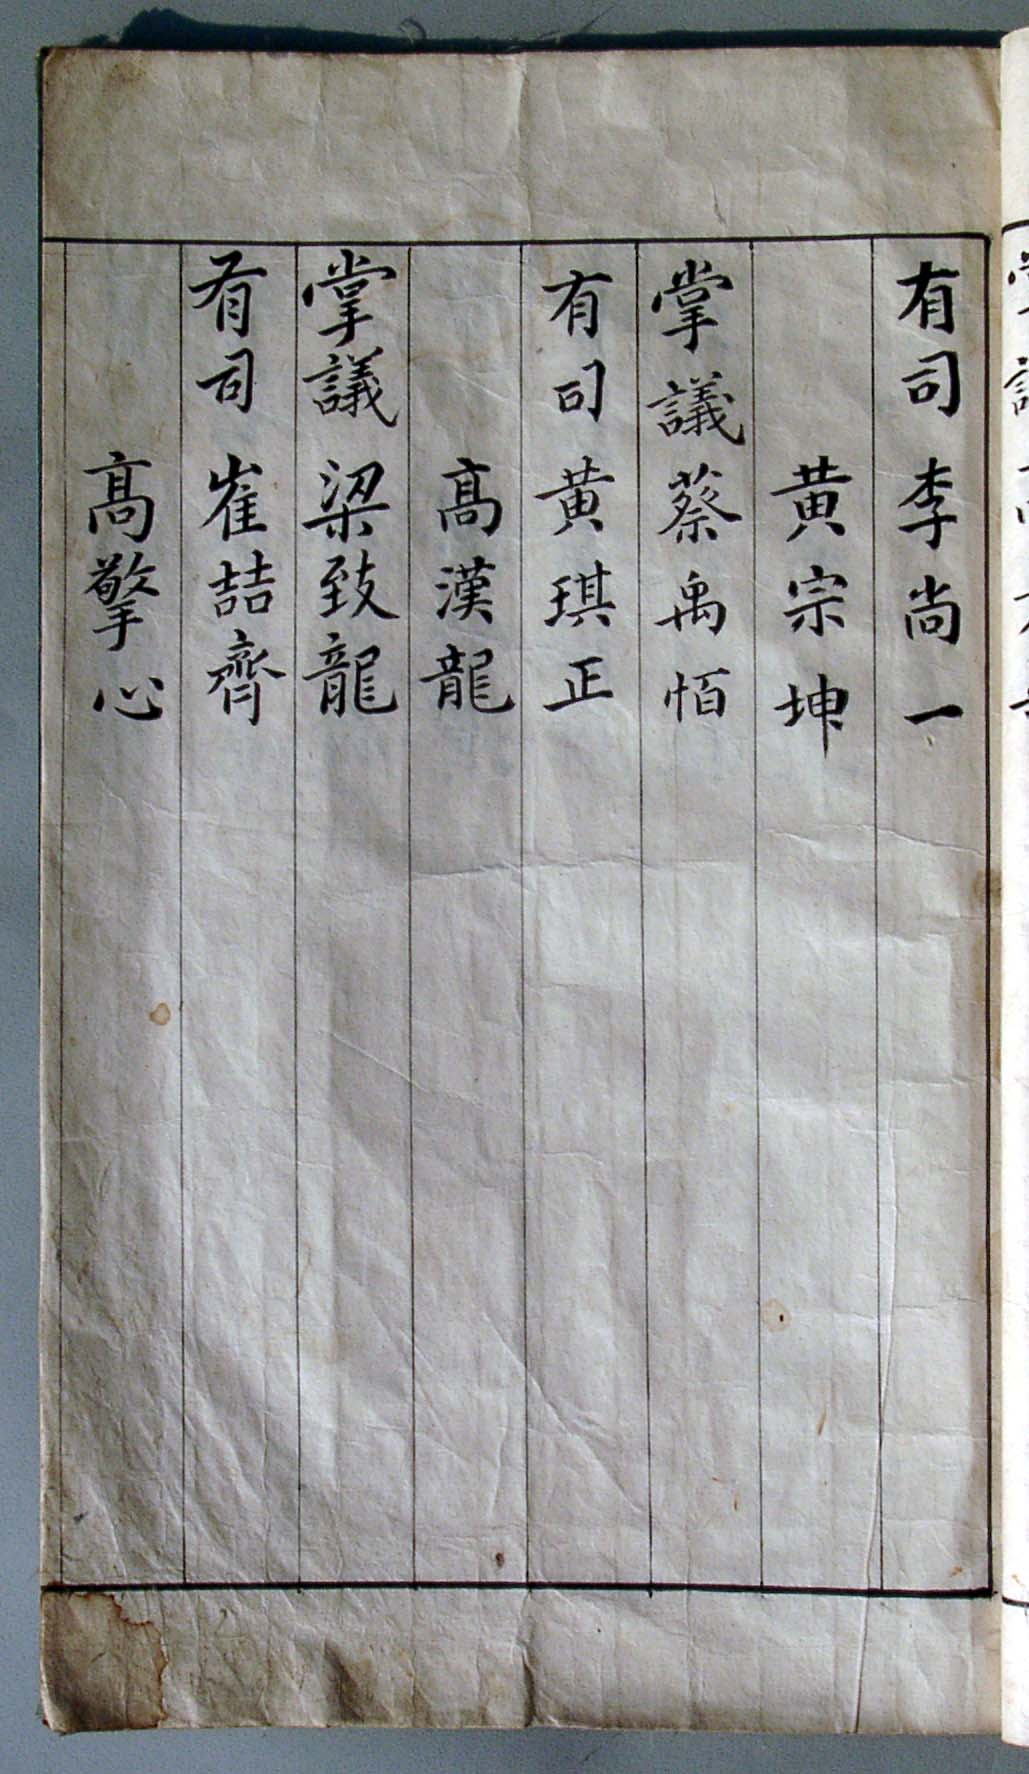 有司 李尚一
黄宗坤
掌議 蔡禹佰
有司 黄琪正
高漢龍
掌議 梁致龍
有司 崔喆齊
高擎心